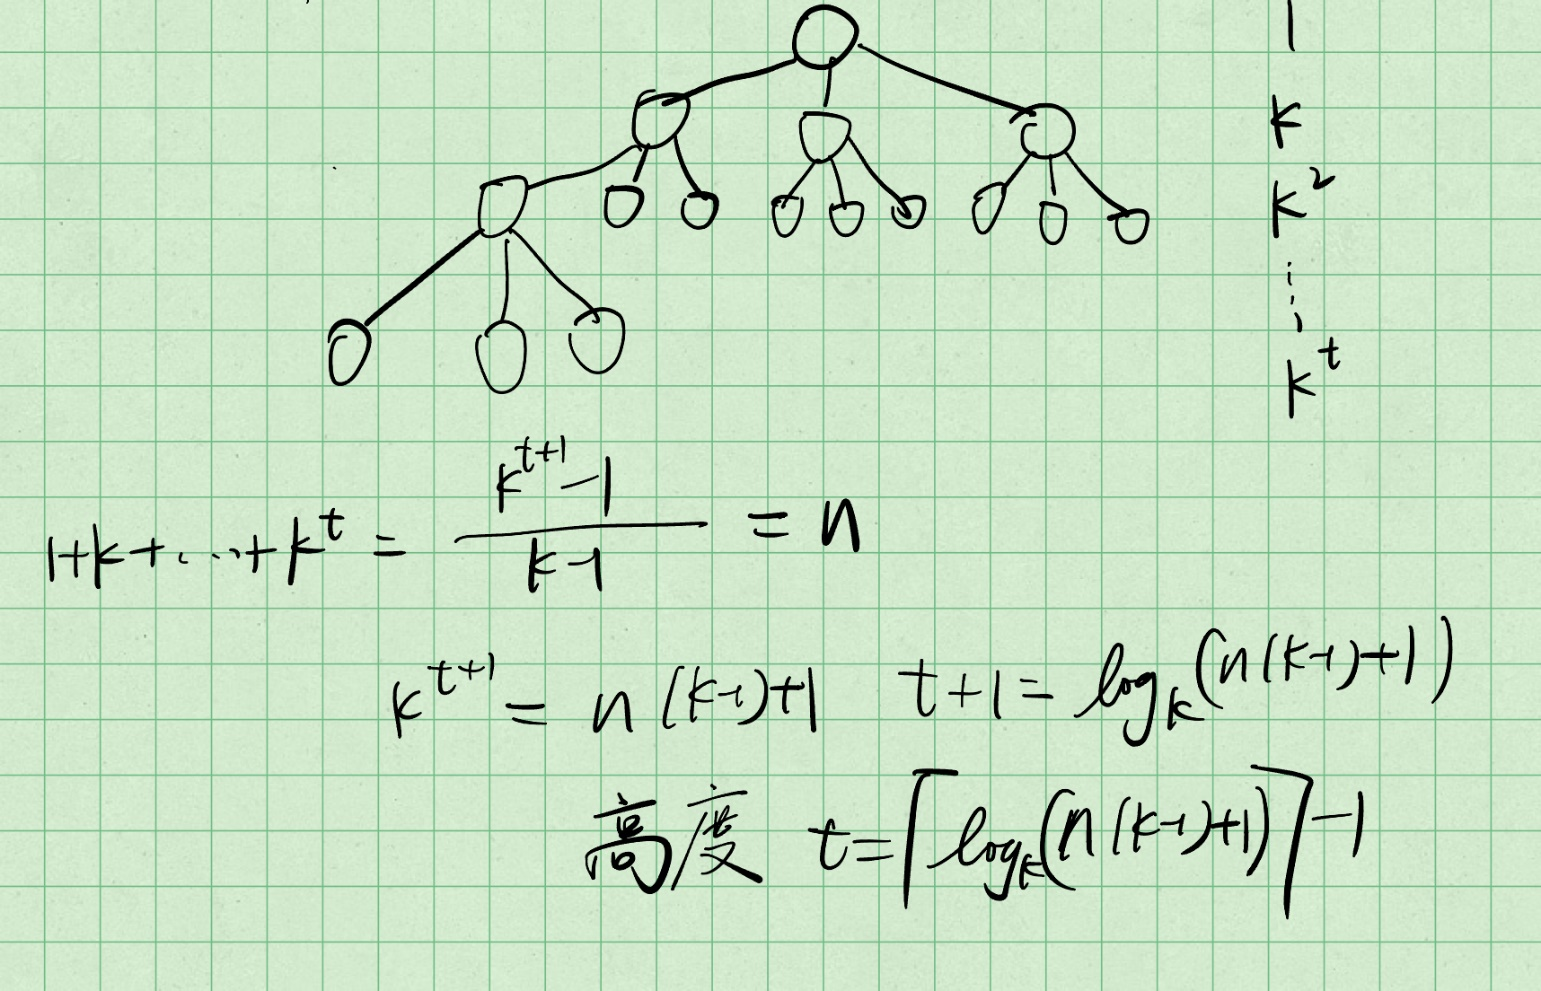 1
k
k²
⋮
k^t
1+k+...+k^t = (k^{t+1}-1)/(k-1) = n
k^{t+1} = n(k-1)+1 t+1 = log_k(n(k-1)+1)
高度 t=⌈log_k(n(k-1)+1)⌉-1